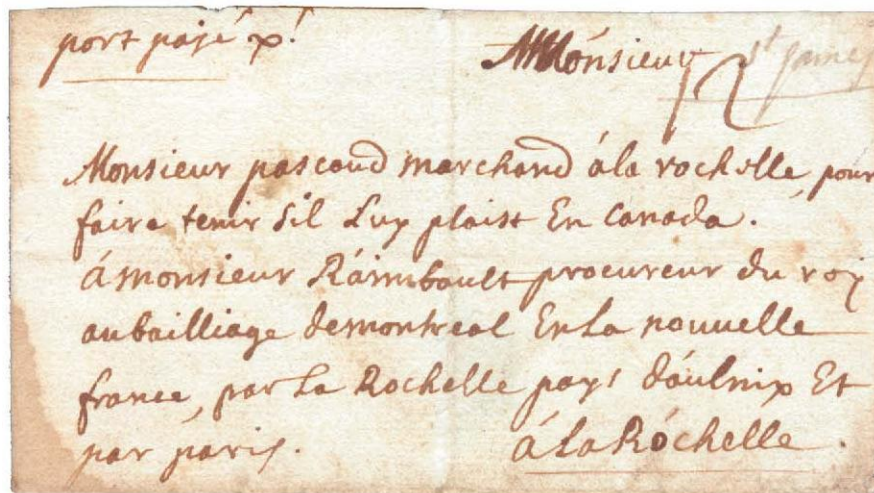 port payé pt. Monsieur St James
Monsieur pascaud marchand à la rochelle, pour
faire tenir sil Luy plaist En Canada.
á monsieur Ráimbault procureur du roy
aubailliage demontreal En La nouvelle
france, par La Rochelle pays dáulnix Et
par paris. á La Róchelle.